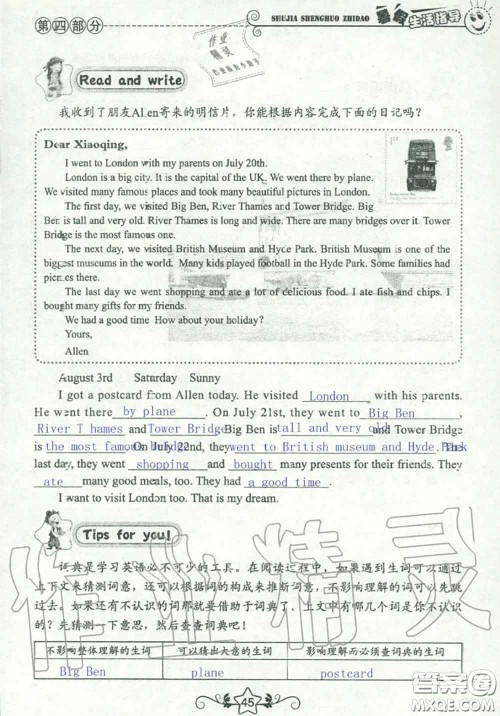 第四部分
SHUJIA SHENGHUO ZHIDAO
暑假生活指导
Read and write
我收到了朋友Allen寄来的明信片，你能根据内容完成下面的日记吗？
Dear Xiaoqing,
I went to London with my parents on July 20th.
London is a big city. It is the capital of the UK. We went there by plane.
We visited many famous places and took many beautiful pictures in London.
The first day, we visited Big Ben, River Thames and Tower Bridge. Big
Ben is tall and very old. River Thames is long and wide. There are many bridges over it. Tower
Bridge is the most famous one.
The next day, we visited British Museum and Hyde Park. British Museum is one of the
biggest museums in the world. Many kids played football in the Hyde Park. Some families had
picnics there.
The last day we went shopping and ate a lot of delicious food. I ate fish and chips. I
bought many gifts for my friends.
We had a good time How about your holiday?
Yours,
Allen
August 3rd Saturday Sunny
I got a postcard from Allen today. He visited London with his parents.
He went there by plane. On July 21st, they went to Big Ben
River T hames and Tower Bridge Big Ben is tall and very old and Tower Bridge
is the most famous bridge On July 22nd, they went to British museum and Hyde Park The
last day, they went shopping and bought many presents for their friends. They
ate many good meals, too. They had a good time.
I want to visit London too. That is my dream.
Tips for you!
词典是学习英语必不可少的工具。在阅读过程中，如果遇到生词可以通过
上下文来猜测词意，还可以根据词的构成来推断词意，不影响理解的可以先跳
过去。如果还有不认识的词那就要借助于词典了。上文中有哪几个词是你不认
识的？先猜测一下意思，然后查查词典吧！
不影响整体理解的生词 可以猜出大意的生词 影响理解而必须查词典的生词
Big Ben plane postcard
45
作业精灵
答案圈
MXQE.COM